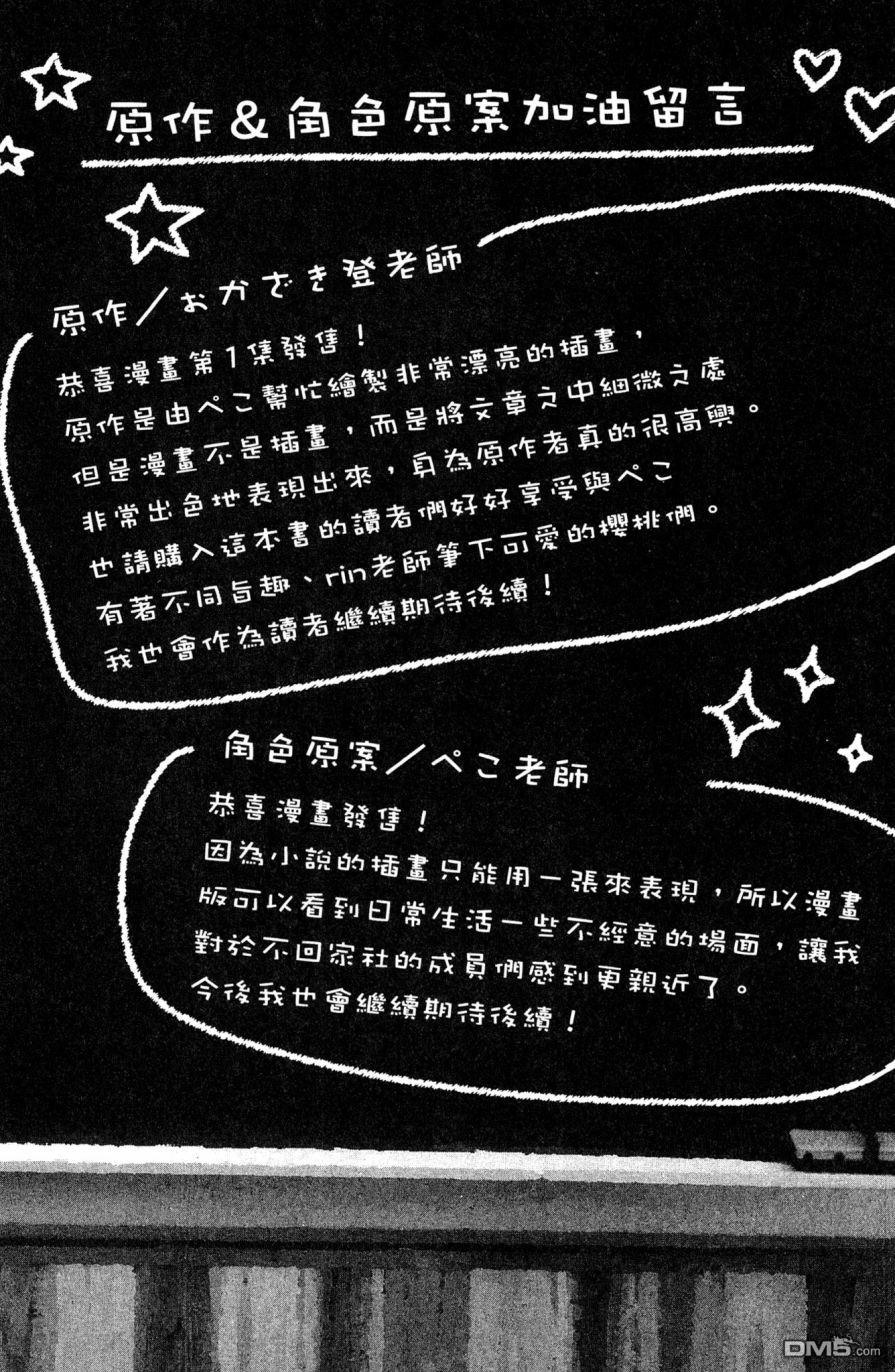 原作&角色原案加油留言
原作／おかざき登老師
恭喜漫畫第1集發售！
原作是由ぺこ幫忙繪製非常漂亮的插畫，
但是漫畫不是插畫，而是將文章之中細微之處
非常出色地表現出來，身為原作者真的很高興。
也請購入這本書的讀者們好好享受與ぺこ
有著不同旨趣、rin老師筆下可愛的櫻桃們。
我也會作為讀者繼續期待後續！
角色原案／ぺこ老師
恭喜漫畫發售！
因為小說的插畫只能用一張來表現，所以漫畫
版可以看到日常生活一些不經意的場面，讓我
對於不回家社的成員們感到更親近了。
今後我也會繼續期待後續！
DM5.com